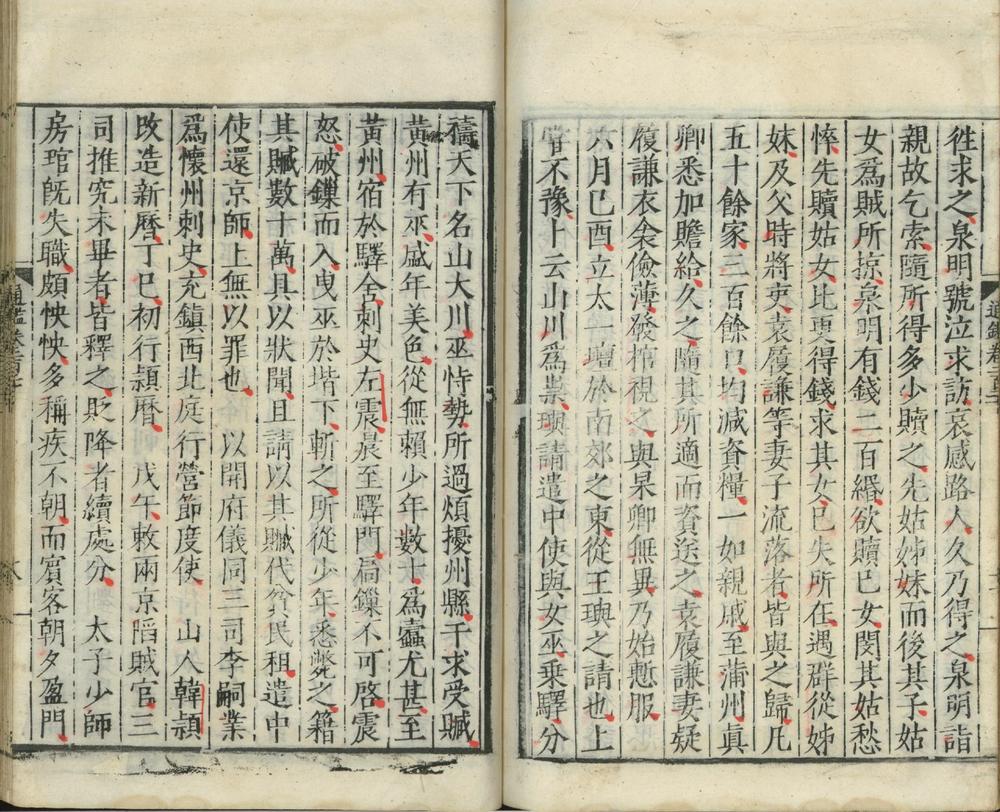 徃求之泉明號泣求訪哀感路人久乃得之泉明詣
親故乞索隨所得多少贖之先姑姊妹而後其子姑
女爲賊所掠泉明有錢二百緡欲贖己女閔其姑愁
悴先贖姑女比更得錢求其女已失所在遇群從姊
妹及父時將吏袁履謙等妻子流落者皆與之歸凡
五十餘家三百餘口均減資糧一如親戚至蒲州眞
卿悉加贍給久之隨其所適而資送之袁履謙妻疑
履謙衣衾儉薄發棺視之與杲卿無異乃始慙服
六月己酉立太一壇於南郊之東從王璵之請也上
嘗不豫卜云山川爲祟璵請遣中使與女巫乘驛分
禱天下名山大川巫恃勢所過煩擾州縣干求受贓
黄州有巫盛年美色從無賴少年數十爲蠹尤甚至
黄州宿於驛舍刺史左震晨至驛門扃鏁不可啓震
怒破鏁而入曳巫於堦下斬之所從少年悉斃之籍
其贓數十萬具以狀聞且請以其贓代貧民租遣中
使還京師上無以罪也 以開府儀同三司李嗣業
爲懷州刺史充鎮西北庭行營節度使 山人韓頴
改造新曆丁巳初行頴曆 戊午敕兩京陷賊官三
司推究未畢者皆釋之貶降者續處分 太子少師
房琯旣失職頗怏怏多稱疾不朝而賓客朝夕盈門